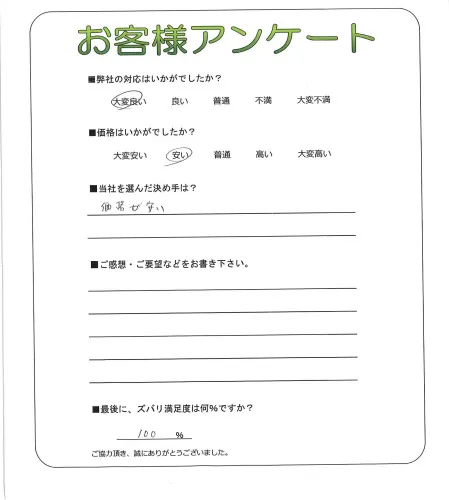 お客様アンケート
■弊社の対応はいかがでしたか？
大変良い 良い 普通 不満 大変不満
■価格はいかがでしたか？
大変安い 安い 普通 高い 大変高い
■当社を選んだ決め手は？
価格が安い
■ご感想・ご要望などをお書き下さい。
■最後に、ズバリ満足度は何％ですか？
100 ％
ご協力頂き、誠にありがとうございました。